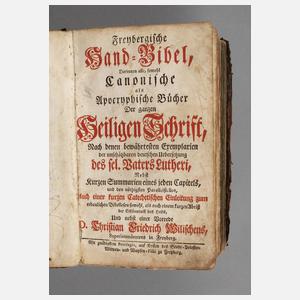 Freybergische
Hand-Bibel,
Darinnen alle, sowohl
Canonische
als
Apocryphische Bücher
Der ganzen
Heiligen Schrift,
Nach denen bewährtesten Exemplarien
der unschätzbaren deutschen Uebersetzung
des sel. Vaters Lutheri,
Nebst
Kurzen Summarien eines jeden Capitels,
und den nützigsten Parallelstellen,
Auch einer kurzen Catechetischen Einleitung zum
erbaulichen Bibellesen sowohl, als auch einem kurzen Abriß
der
Und nebst einer Vorrede
D. Christian Friedrich Wilischens,
Superintendentens in Freyberg.
Mit gnädigstem auf Kosten der Stadt-Priester-
Wittwen- und Waysen- zu Freyberg.